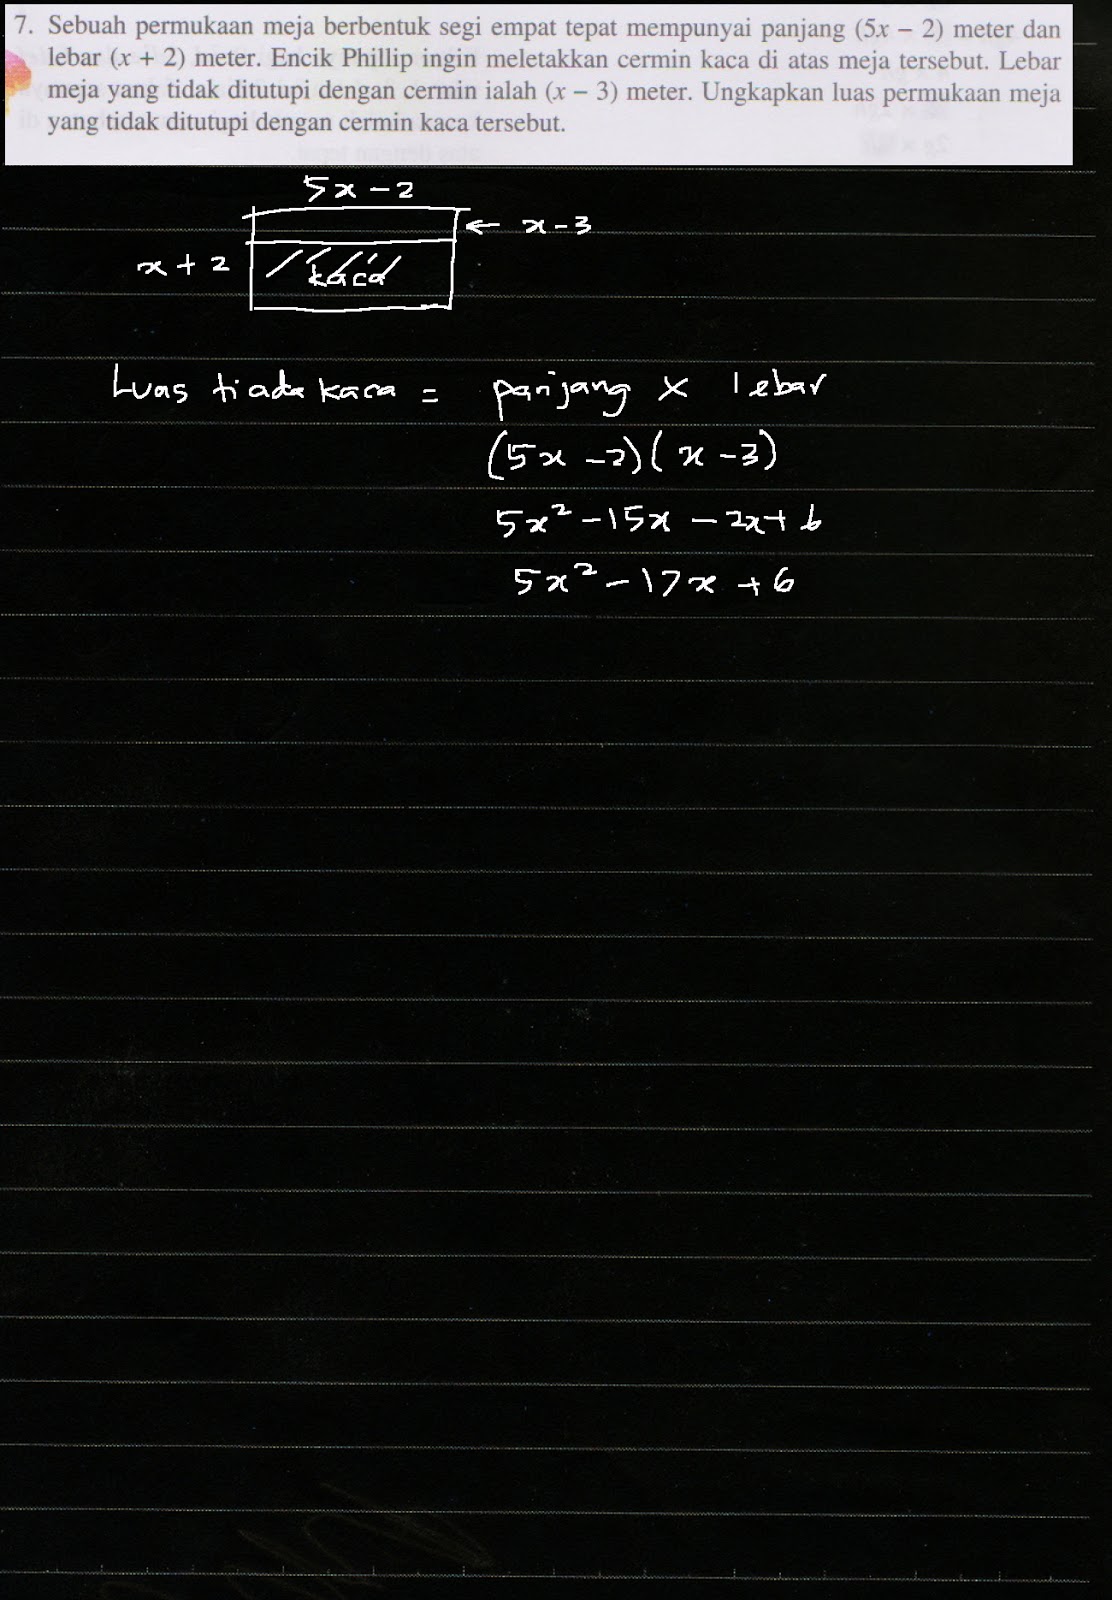 7. Sebuah permukaan meja berbentuk segi empat tepat mempunyai panjang (5x – 2) meter dan
lebar (x + 2) meter. Encik Phillip ingin meletakkan cermin kaca di atas meja tersebut. Lebar
meja yang tidak ditutupi dengan cermin ialah (x – 3) meter. Ungkapkan luas permukaan meja
yang tidak ditutupi dengan cermin kaca tersebut.
5x – 2
← x – 3
x + 2
kaca
Luas tiada kaca = panjang × lebar
(5x – 2)(x – 3)
5x² – 15x – 2x + 6
5x² – 17x + 6